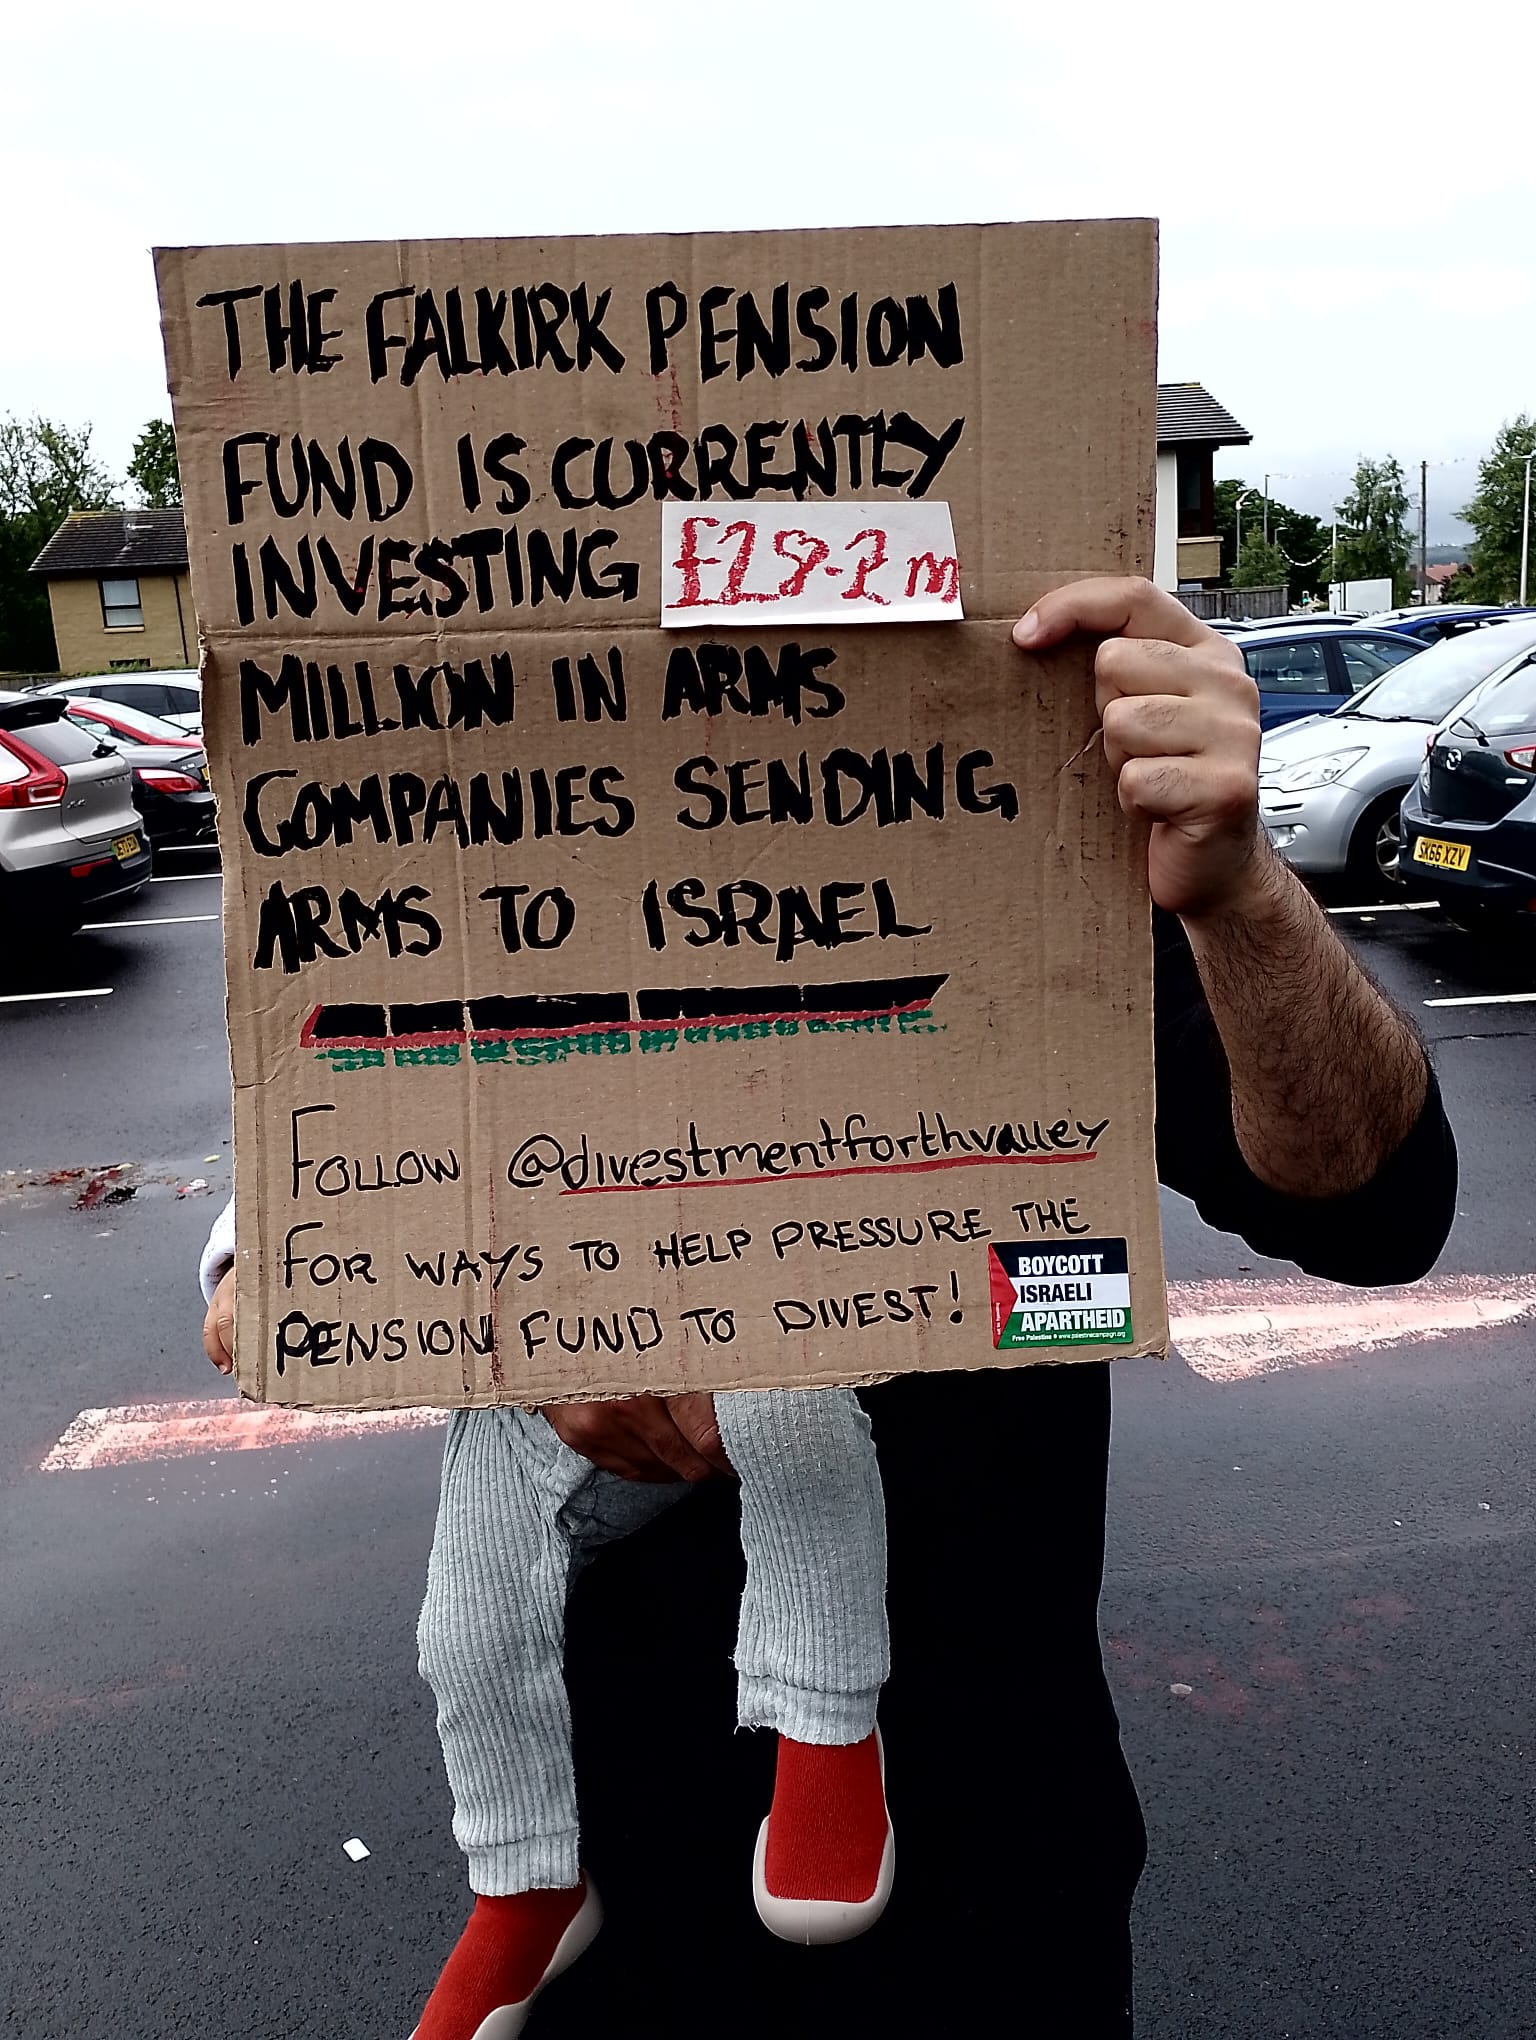 THE FALKIRK PENSION
FUND IS CURRENTLY
INVESTING £28.2m
MILLION IN ARMS
COMPANIES SENDING
ARMS TO ISRAEL
FOLLOW @divestmentforthvalley
FOR WAYS TO HELP PRESSURE THE
PENSION FUND TO DIVEST!
BOYCOTT
ISRAELI
APARTHEID
Free Palestine www.palestinecampaign.org
SK66 XZV